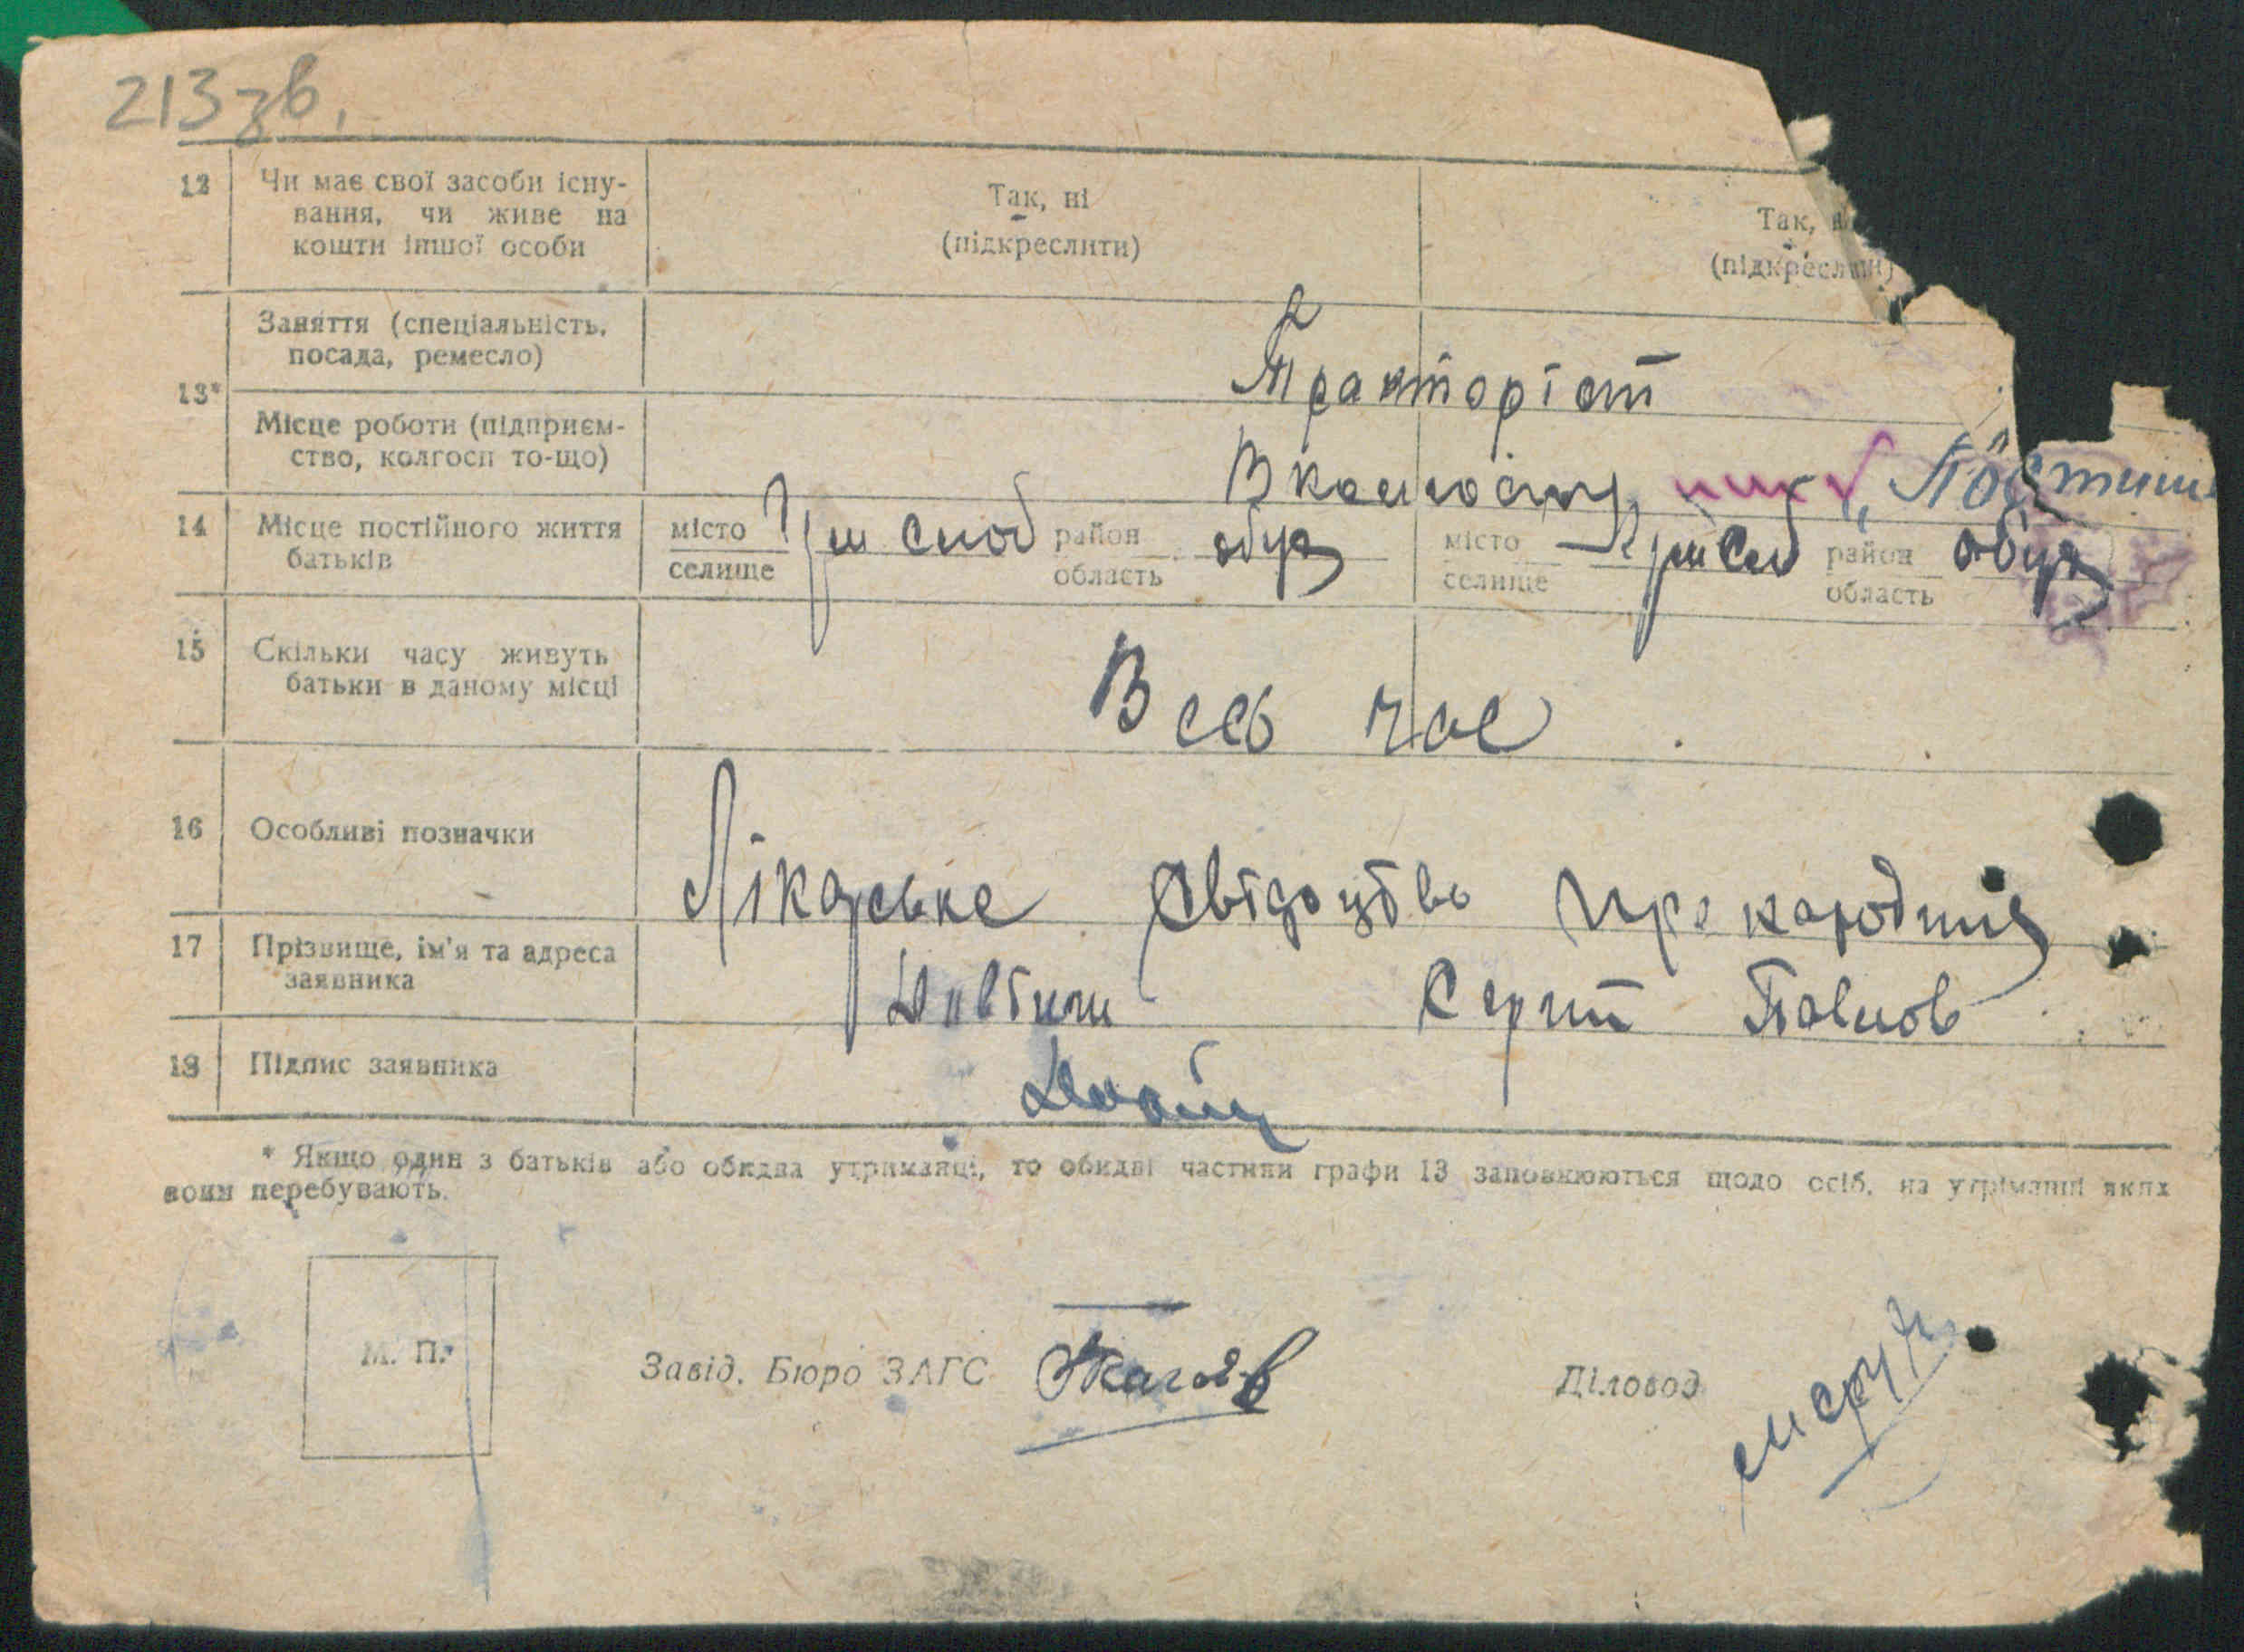 213 зв.
12 Чи має свої засоби існу-
вання, чи живе на
кошти іншої особи
Так, ні
(підкреслити)
Так, н
(підкреслити)
13* Заняття (спеціальність,
посада, ремесло)
Тракторіст
Місце роботи (підприєм-
ство, колгосп то-що)
В колгоспу
14 Місце постійного життя
батьків
місто
селище
район
область
місто
селище
район
область
15 Скільки часу живуть
батьки в даному місці
Весь час
16 Особливі позначки
Лікарське свідоцтво про народжіня
17 Прізвище, ім'я та адреса
заявника
Сергій Павлов
18 Підпис заявника
* Якщо один з батьків або обидва утриманці, то обидві частини графи 13 заповнюються щодо осіб, на утріманні яких
вони перебувають.
М. П.
Завід. Бюро ЗАГС
Діловод